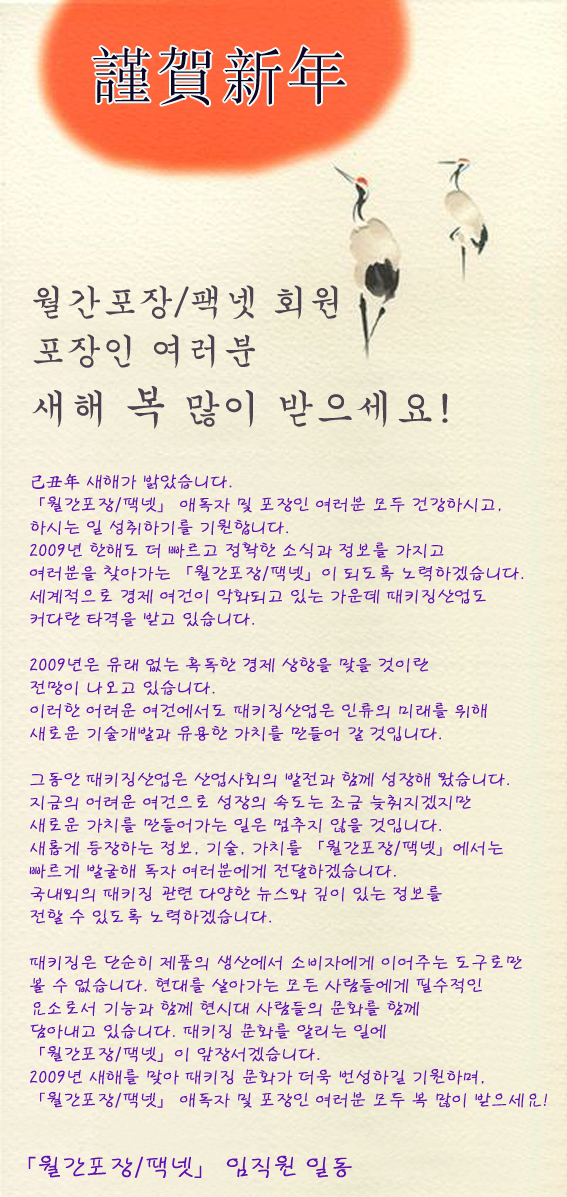 謹賀新年
월간포장/팩넷 회원
포장인 여러분
새해 복 많이 받으세요!
己丑年 새해가 밝았습니다.
「월간포장/팩넷」 애독자 및 포장인 여러분 모두 건강하시고,
하시는 일 성취하기를 기원합니다.
2009년 한해도 더 빠르고 정확한 소식과 정보를 가지고
여러분을 찾아가는 「월간포장/팩넷」이 되도록 노력하겠습니다.
세계적으로 경제 여건이 악화되고 있는 가운데 패키징산업도
커다란 타격을 받고 있습니다.
2009년은 유래 없는 혹독한 경제 상황을 맞을 것이란
전망이 나오고 있습니다.
이러한 어려운 여건에서도 패키징산업은 인류의 미래를 위해
새로운 기술개발과 유용한 가치를 만들어 갈 것입니다.
그동안 패키징산업은 산업사회의 발전과 함께 성장해 왔습니다.
지금의 어려운 여건으로 성장의 속도는 조금 늦춰지겠지만
새로운 가치를 만들어가는 일은 멈추지 않을 것입니다.
새롭게 등장하는 정보, 기술, 가치를 「월간포장/팩넷」에서는
빠르게 발굴해 독자 여러분에게 전달하겠습니다.
국내외의 패키징 관련 다양한 뉴스와 깊이 있는 정보를
전할 수 있도록 노력하겠습니다.
패키징은 단순히 제품의 생산에서 소비자에게 이어주는 도구로만
볼 수 없습니다. 현대를 살아가는 모든 사람들에게 필수적인
요소로서 기능과 함께 현시대 사람들의 문화를 함께
담아내고 있습니다. 패키징 문화를 알리는 일에
「월간포장/팩넷」이 앞장서겠습니다.
2009년 새해를 맞아 패키징 문화가 더욱 번성하길 기원하며,
「월간포장/팩넷」 애독자 및 포장인 여러분 모두 복 많이 받으세요!
「월간포장/팩넷」 임직원 일동